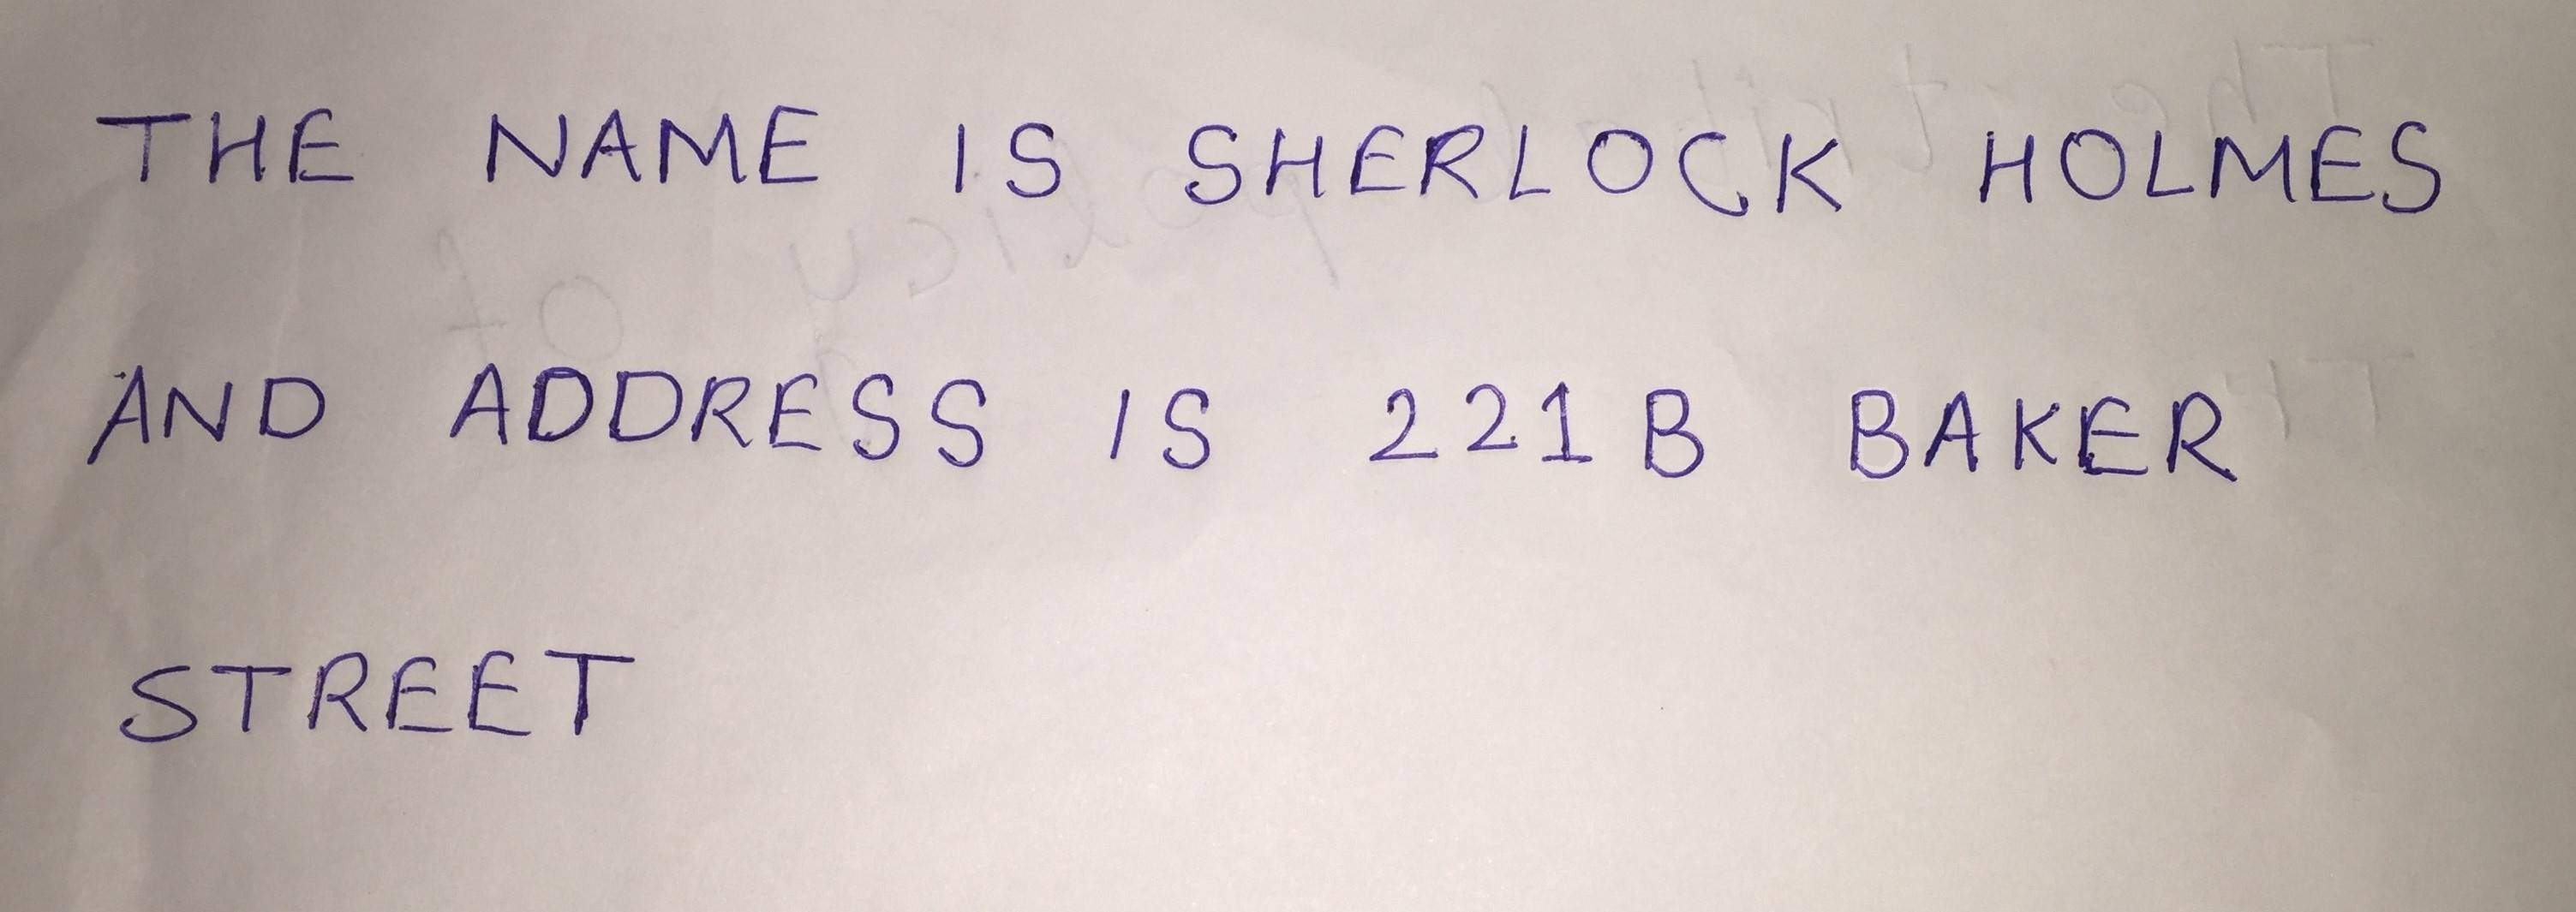 THE NAME IS SHERLOCK HOLMES
AND ADDRESS IS 221B BAKER
STREET